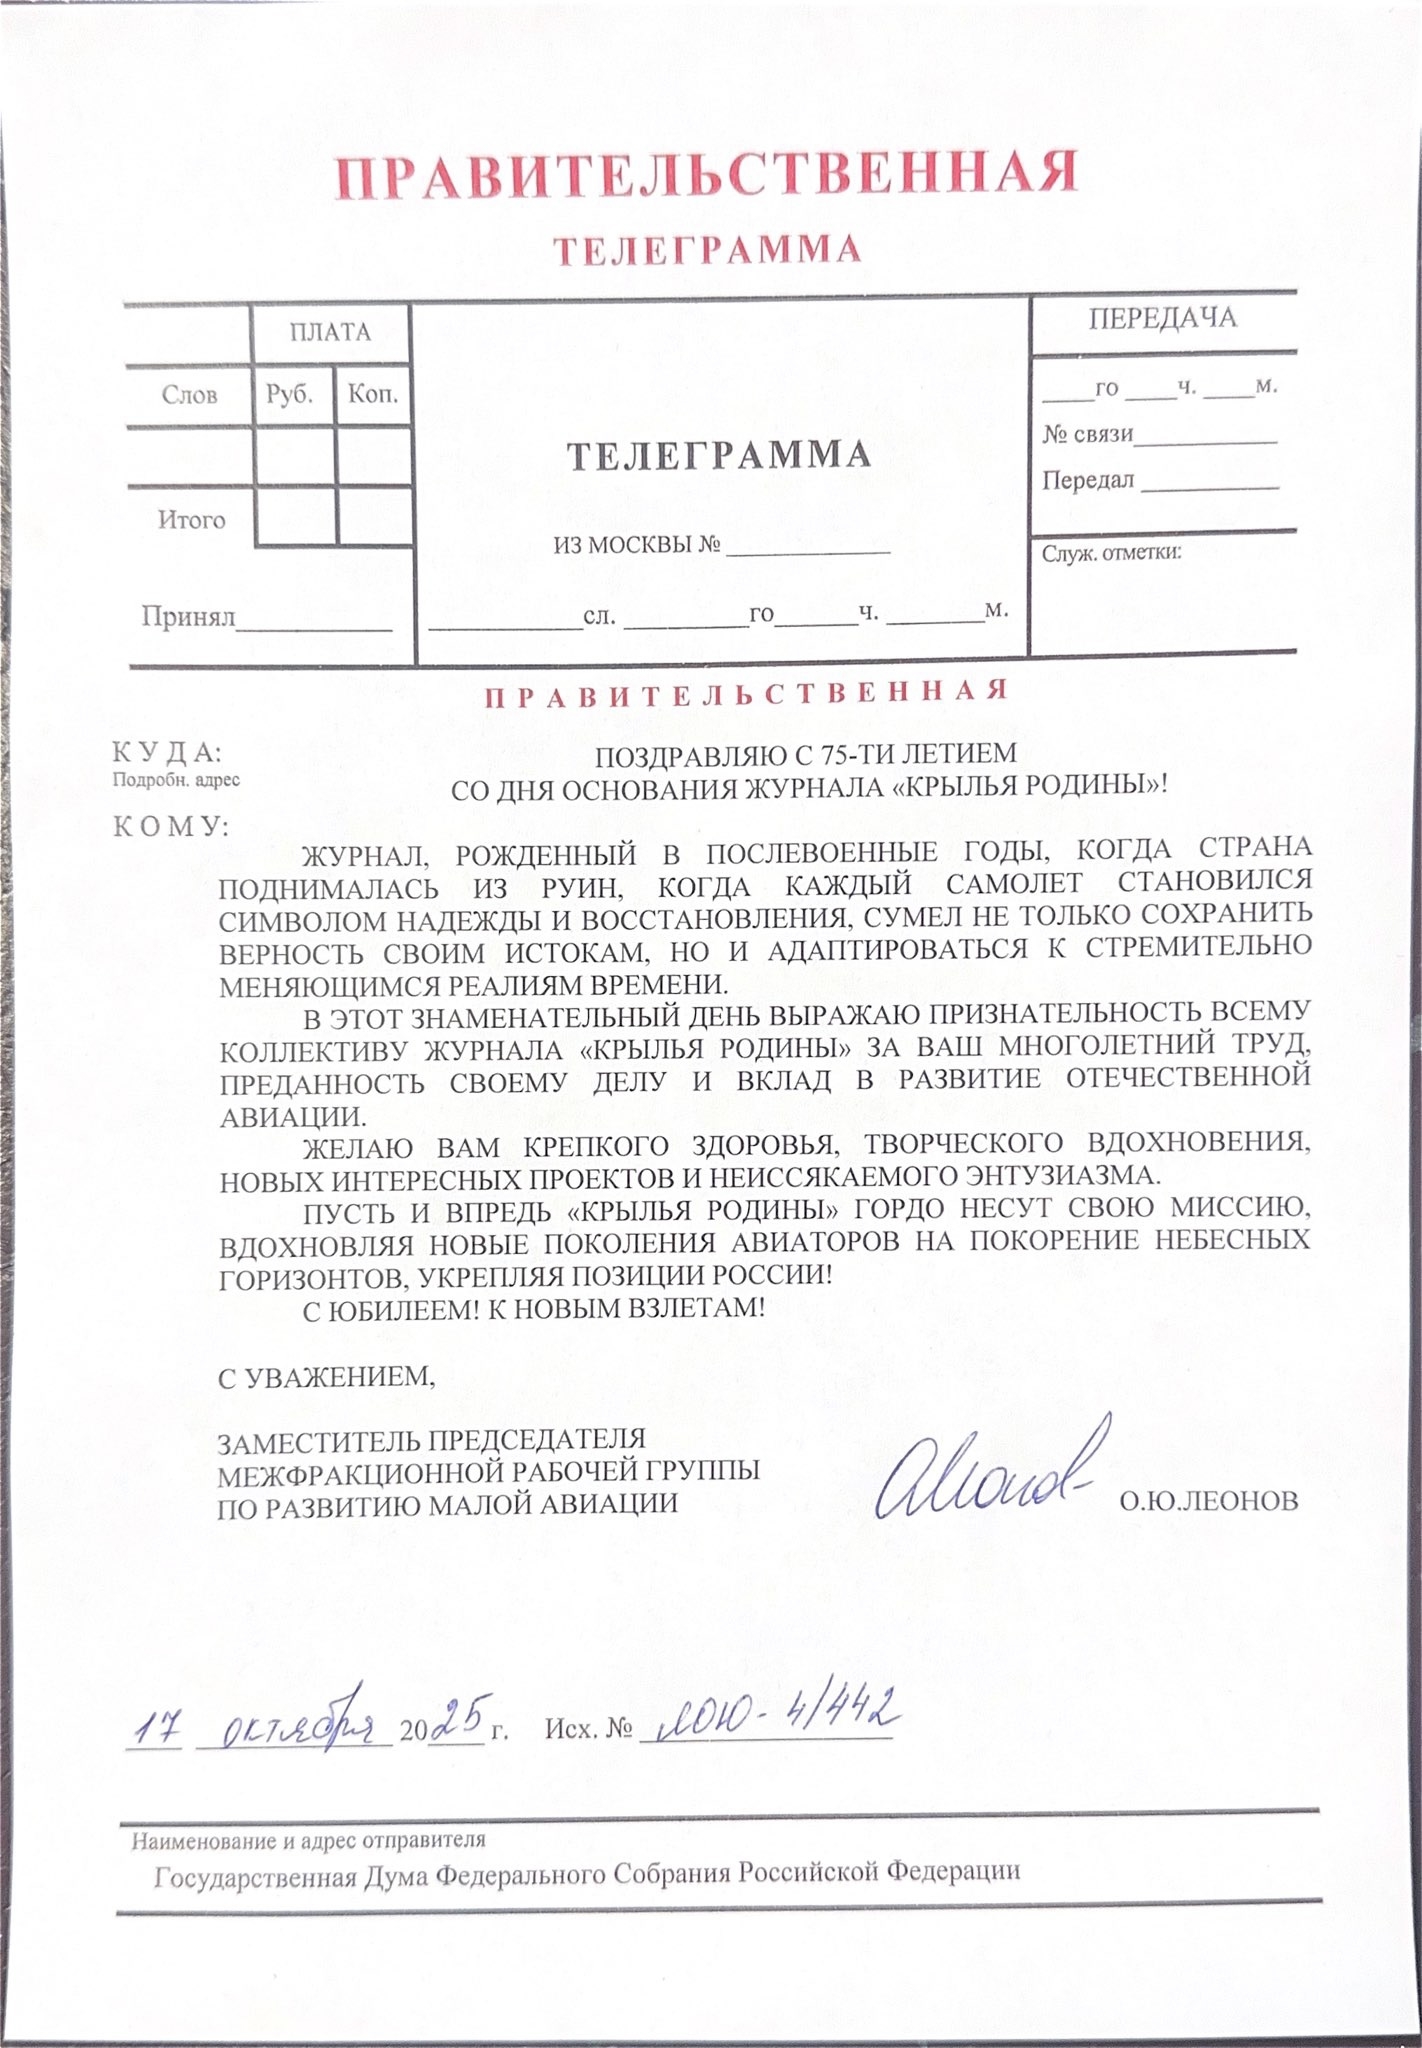 ПРАВИТЕЛЬСТВЕННАЯ
ТЕЛЕГРАММА
ПЛАТА
Слов Руб. Коп.
Итого
Принял____________
ТЕЛЕГРАММА
ИЗ МОСКВЫ № ____________
____________сл. _________го______ч. _______м.
ПЕРЕДАЧА
____го ____ч. ____м.
№ связи___________
Передал ___________
Служ. отметки:
ПРАВИТЕЛЬСТВЕННАЯ
КУДА:
Подробн. адрес
КОМУ:
ПОЗДРАВЛЯЮ С 75-ТИ ЛЕТИЕМ
СО ДНЯ ОСНОВАНИЯ ЖУРНАЛА «КРЫЛЬЯ РОДИНЫ»!
ЖУРНАЛ, РОЖДЕННЫЙ В ПОСЛЕВОЕННЫЕ ГОДЫ, КОГДА СТРАНА
ПОДНИМАЛАСЬ ИЗ РУИН, КОГДА КАЖДЫЙ САМОЛЕТ СТАНОВИЛСЯ
СИМВОЛОМ НАДЕЖДЫ И ВОССТАНОВЛЕНИЯ, СУМЕЛ НЕ ТОЛЬКО СОХРАНИТЬ
ВЕРНОСТЬ СВОИМ ИСТОКАМ, НО И АДАПТИРОВАТЬСЯ К СТРЕМИТЕЛЬНО
МЕНЯЮЩИМСЯ РЕАЛИЯМ ВРЕМЕНИ.
В ЭТОТ ЗНАМЕНАТЕЛЬНЫЙ ДЕНЬ ВЫРАЖАЮ ПРИЗНАТЕЛЬНОСТЬ ВСЕМУ
КОЛЛЕКТИВУ ЖУРНАЛА «КРЫЛЬЯ РОДИНЫ» ЗА ВАШ МНОГОЛЕТНИЙ ТРУД,
ПРЕДАННОСТЬ СВОЕМУ ДЕЛУ И ВКЛАД В РАЗВИТИЕ ОТЕЧЕСТВЕННОЙ
АВИАЦИИ.
ЖЕЛАЮ ВАМ КРЕПКОГО ЗДОРОВЬЯ, ТВОРЧЕСКОГО ВДОХНОВЕНИЯ,
НОВЫХ ИНТЕРЕСНЫХ ПРОЕКТОВ И НЕИССЯКАЕМОГО ЭНТУЗИАЗМА.
ПУСТЬ И ВПРЕДЬ «КРЫЛЬЯ РОДИНЫ» ГОРДО НЕСУТ СВОЮ МИССИЮ,
ВДОХНОВЛЯЯ НОВЫЕ ПОКОЛЕНИЯ АВИАТОРОВ НА ПОКОРЕНИЕ НЕБЕСНЫХ
ГОРИЗОНТОВ, УКРЕПЛЯЯ ПОЗИЦИИ РОССИИ!
С ЮБИЛЕЕМ! К НОВЫМ ВЗЛЕТАМ!
С УВАЖЕНИЕМ,
ЗАМЕСТИТЕЛЬ ПРЕДСЕДАТЕЛЯ
МЕЖФРАКЦИОННОЙ РАБОЧЕЙ ГРУППЫ
ПО РАЗВИТИЮ МАЛОЙ АВИАЦИИ О.Ю.ЛЕОНОВ
17 октября 2025 г. Исх. № ЛОЮ-4/442
Наименование и адрес отправителя
Государственная Дума Федерального Собрания Российской Федерации